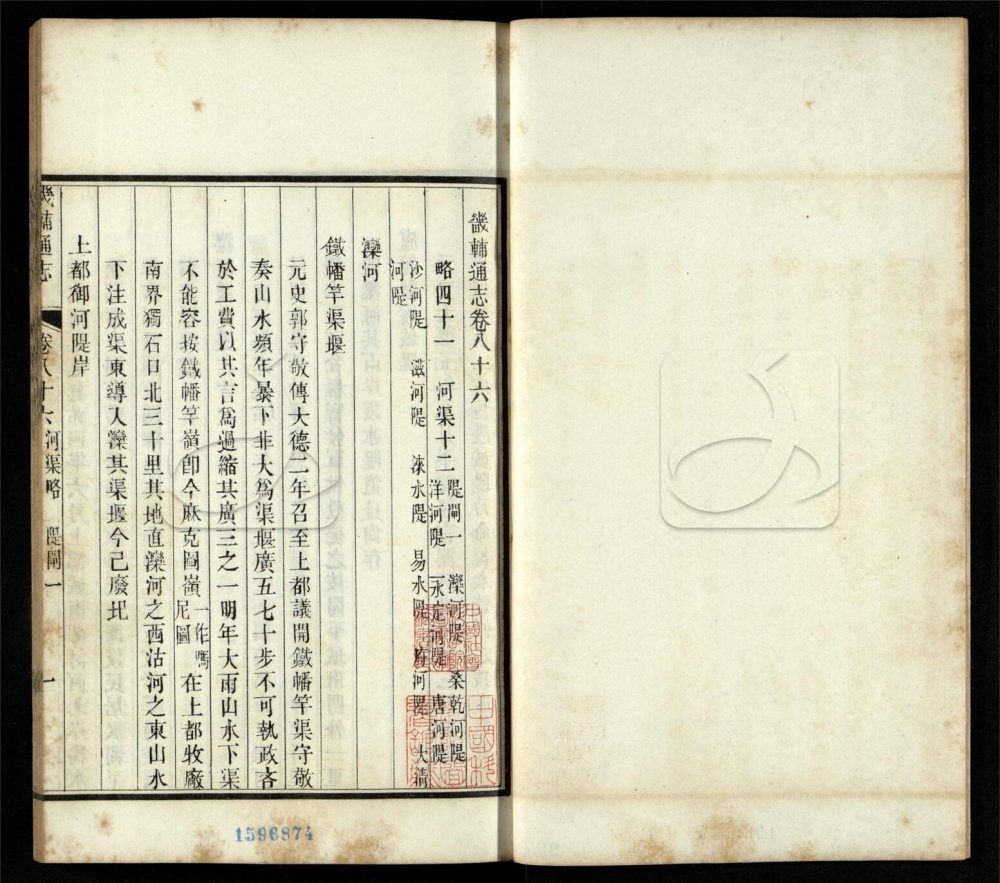 畿輔通志卷八十六
略四十一 河渠十二 隄閘一 灤河隄 桑乾河隄
洋河隄 永定河隄 唐河隄
沙河隄 滋河隄 淶水隄 易水隄 府河隄 大清
河隄
灤河
鐵幡竿渠堰
元史郭守敬傳大德二年召至上都議開鐵幡竿渠守敬
奏山水頻年暴下非大為渠堰廣五七十步不可執政吝
於工費以其言為過縮其廣三之一明年大雨山水下渠
不能容按鐵幡竿嶺卽今厥克圖嶺一作噶尼圖在上都牧廠
南界獨石口北三十里其地直灤河之西沽河之東山水
下注成渠東導入灤其渠堰今已廢圯
上都御河隄岸
畿輔通志 卷八十六 河渠略 隄閘一 一
1596874